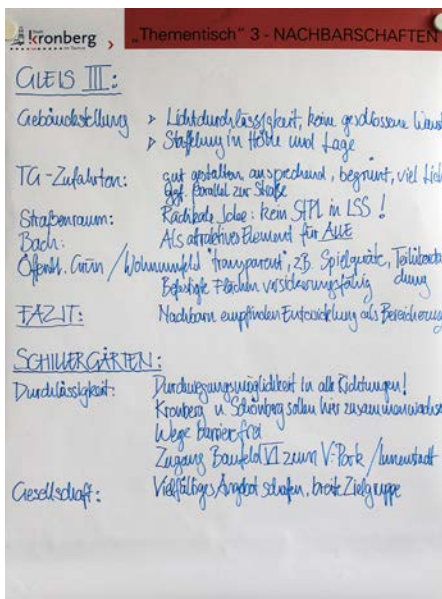 Stadt
Kronberg
im Taunus
„Thementisch" 3 - NACHBARSCHAFTEN
GLEIS III:
Gebäudestellung > Lichtdurchlässigkeit, keine geschlossene Wand
> Staffelung in Höhe und Lage
TG-Zufahrten: gut gestalten, ansprechend, begrünt, viel Lich
ggf. parallel zur Straße
Straßenraum: Radikale Idee: kein STPL in LSS!
Bach: Als attraktives Element für ALLE
Öffentl. Grün / Wohnumfeld "transparent", z.B. Spielgeräte, Teilüberda
chung
Befestigte Flächen versickerungsfähig
FAZIT: Nachbarn empfinden Entwicklung als Bereicherung
SCHILLERGÄRTEN:
Durchlässigkeit: Durchwegungsmöglichkeit in alle Richtungen!
Kronberg u. Schönberg sollen hier zusammenwachse
Wege Barrierefrei
Zugang Baufeld VI zum V-Park / Innenstadt
Gesellschaft: Vielfältiges Angebot schaffen, breite Zielgruppe